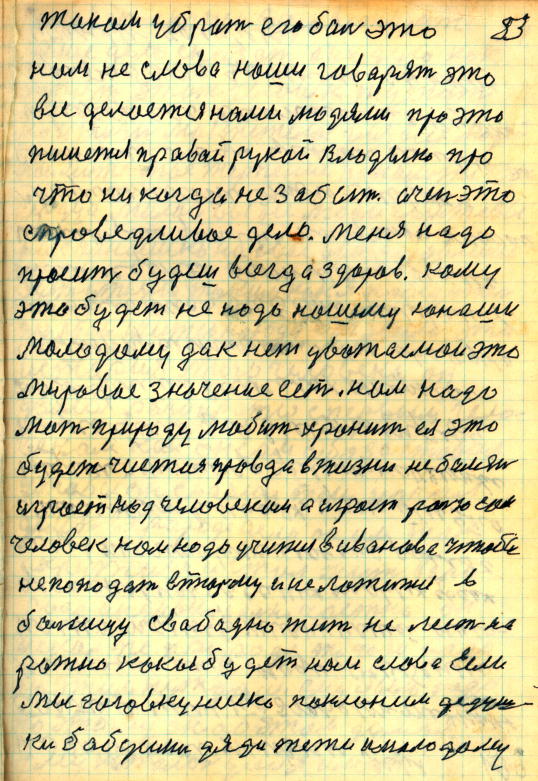 таком убрат его бап это 83
нам не слова наши говарят это
все делается нами людями про это
пишется правай рукой Владыко про
что никогда не забыт. очен это
справедливое дело. Меня надо
просит будеш всегда здоров. кому
это будет не надо нашему юнаши
молодому дак нет уважаемаи это
мировое значение ест. нам надо
мат природу любит хранит ея это
будет чистая правда в жизни не болезн
играет над человеком а играет
человек нам надо учится в иванова чтобы
не попадат в тюрму и не ложится в
болницу свабадно жит не лест на
рожно какое будет нам слова Если
мы головку ниско поклоним дедуш
ки бабушки дяди тети и молодому